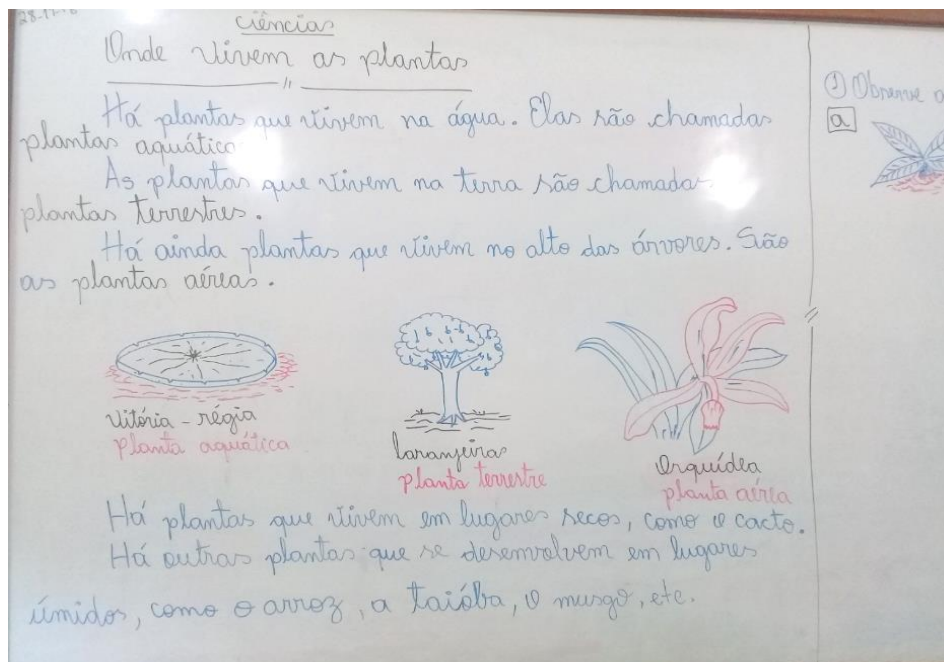 ciências
Onde vivem as plantas
Há plantas que vivem na água. Elas são chamadas
plantas aquática
As plantas que vivem na terra são chamadas
plantas terrestres.
Há ainda plantas que vivem no alto das árvores. São
as plantas aéreas.
Vitória-régia
Planta aquática
laranjeiras
planta terrestre
Orquídea
planta aérea
Há plantas que vivem em lugares secos, como o cacto.
Há outras plantas que se desenvolvem em lugares
úmidos, como o arroz, a taióba, o musgo, etc.
① Observe a
a